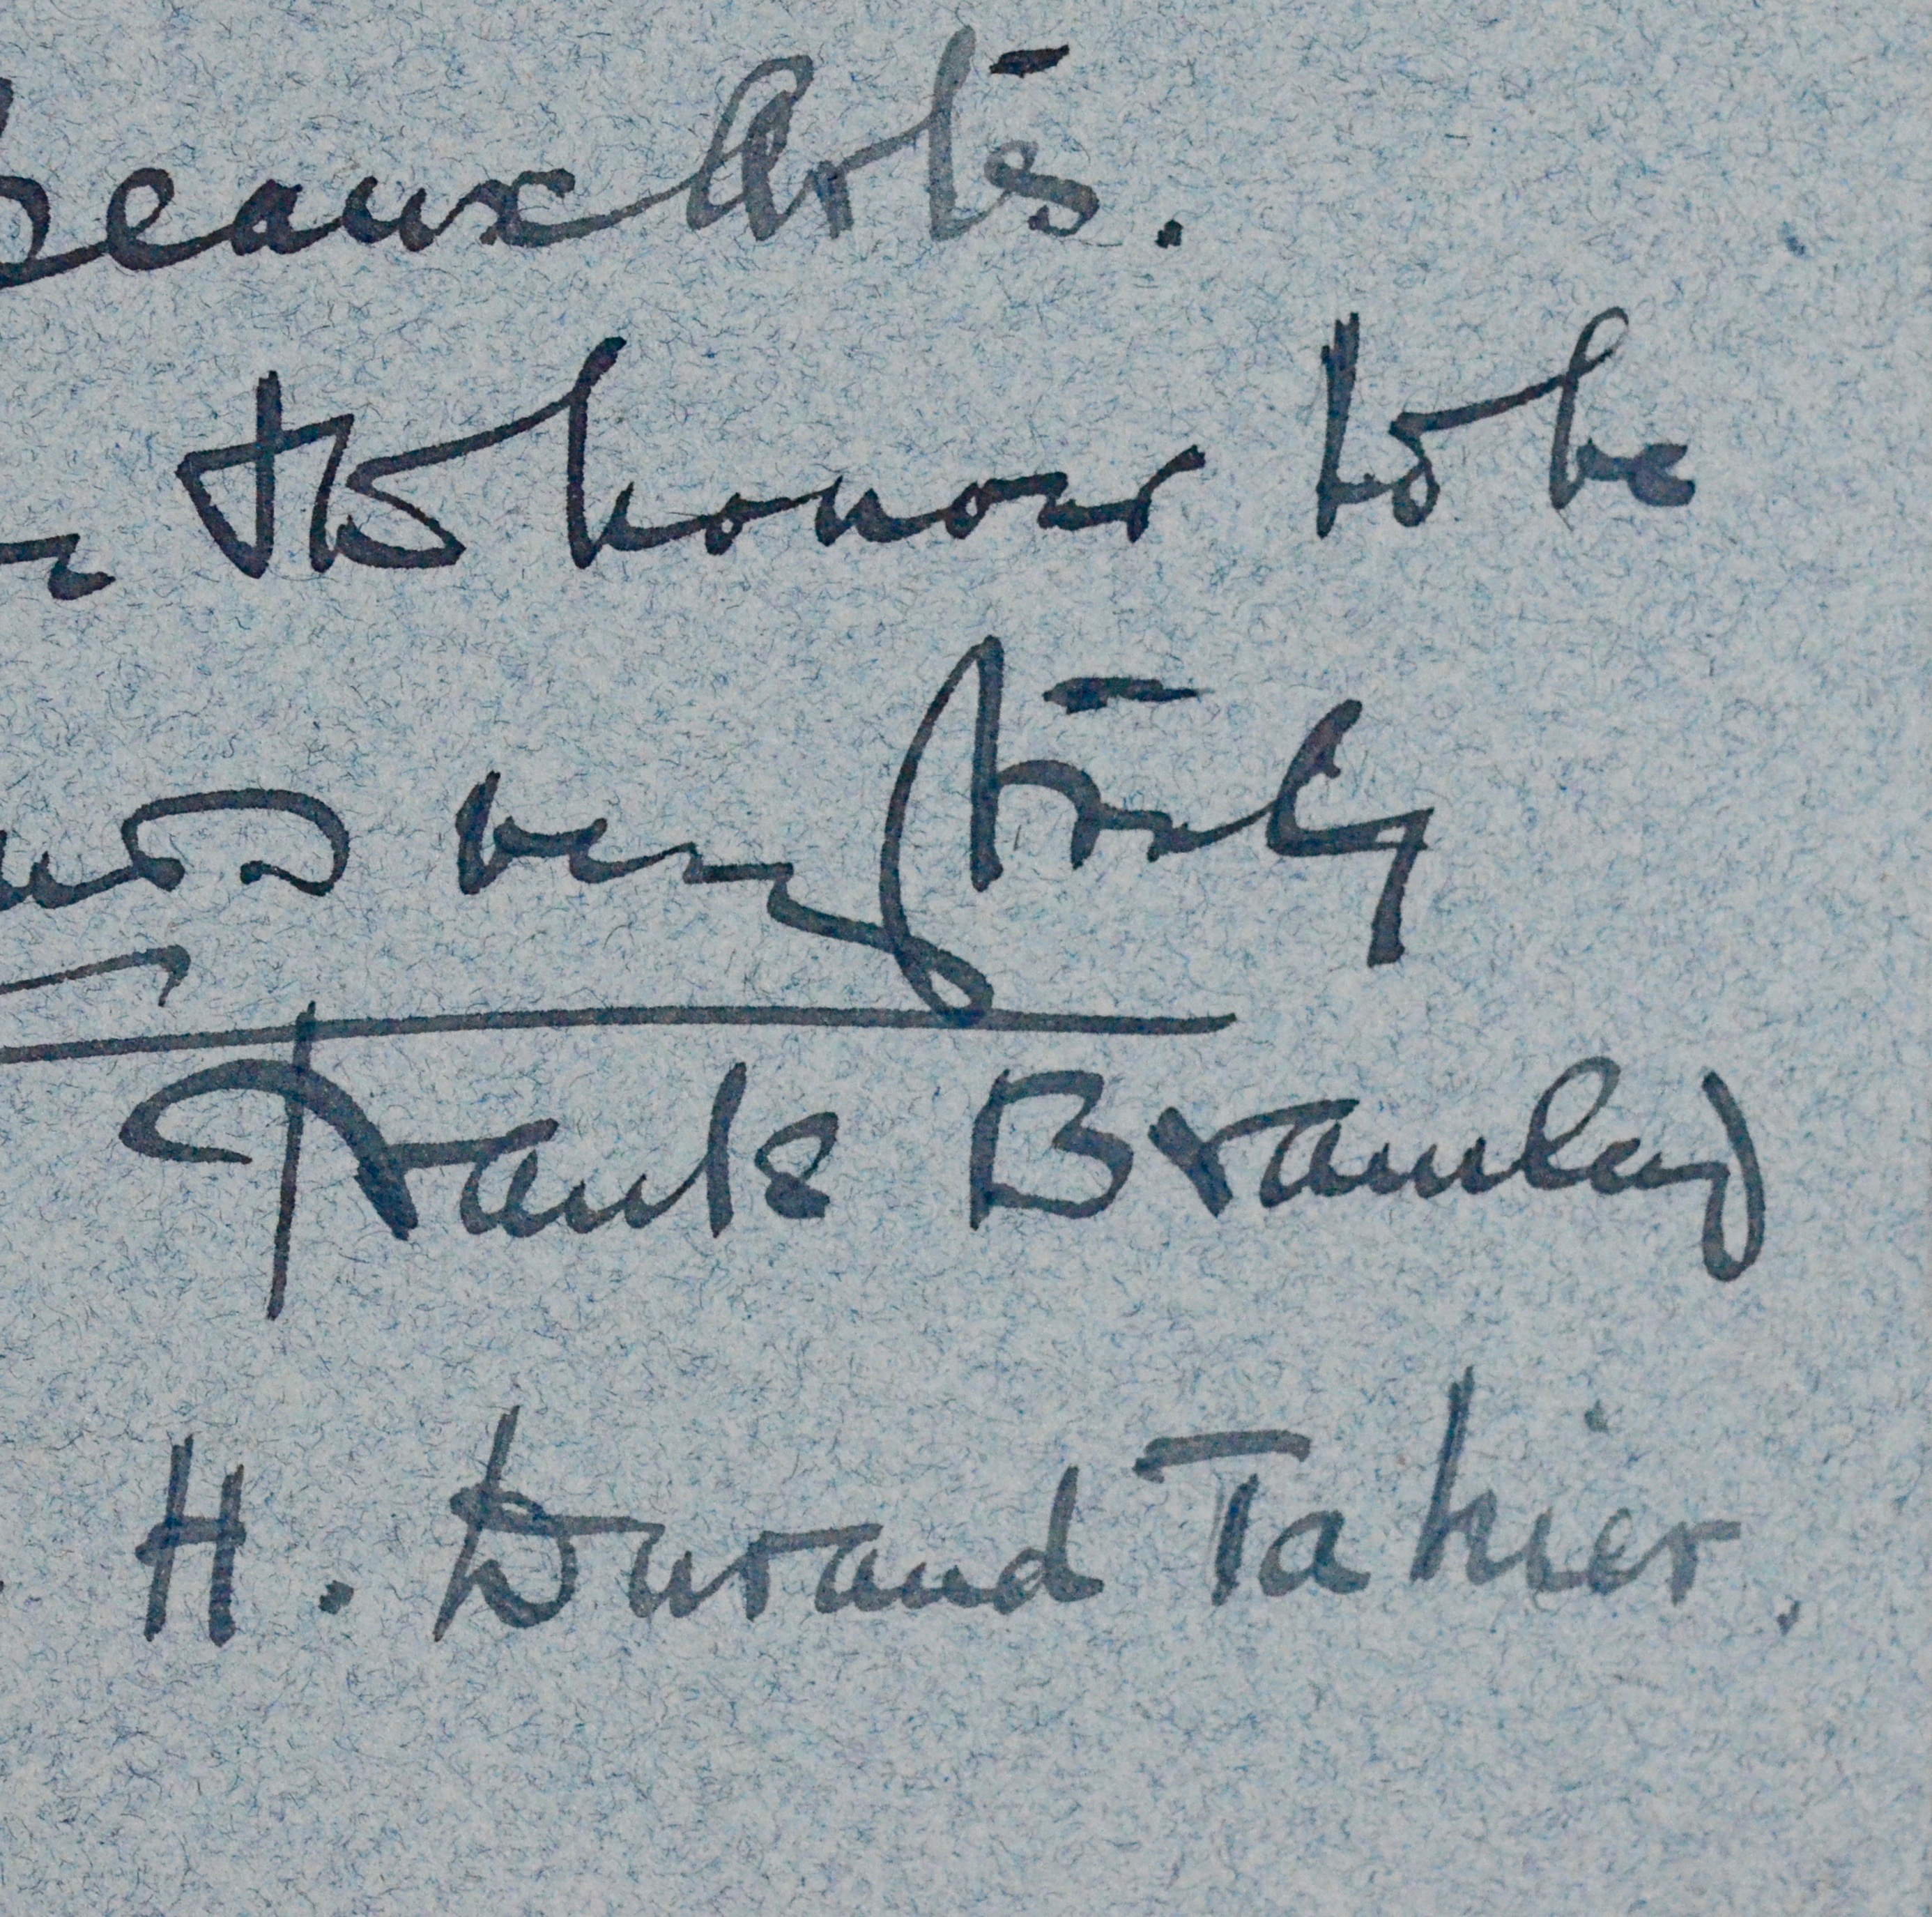 Beaux Arts.
the honour to be
very truly
Frank Bramley
H. Durand Tahier.